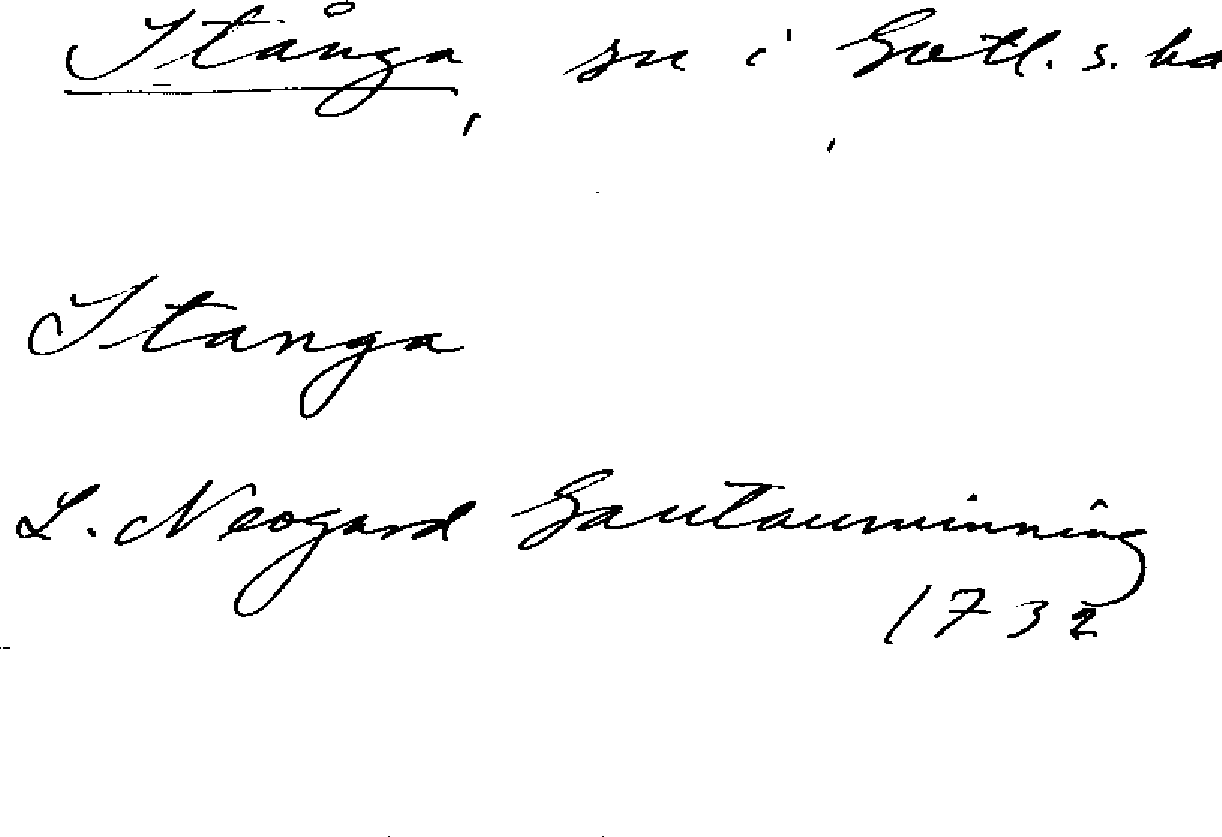 Stånga, sn i Gotl. s. hd
Stanga
L. Neogard Gautauminning
1732